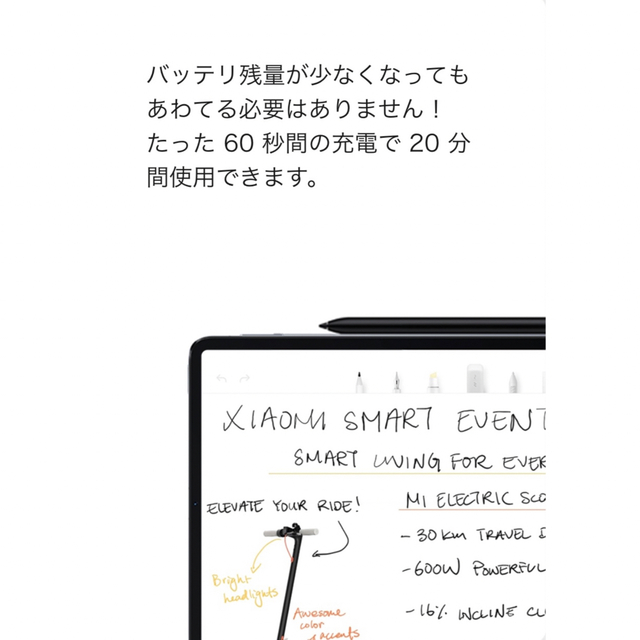 バッテリ残量が少なくなっても
あわてる必要はありません！
たった 60 秒間の充電で 20 分
間使用できます。
XIAOMI SMART EVENT
SMART LIVING FOR EVER
ELEVATE YOUR RIDE!
MI ELECTRIC SCO
- 30 km TRAVEL
- 600W POWERFUL
Bright
headlights
- 16% INCLINE CL
Awesome
color
accents